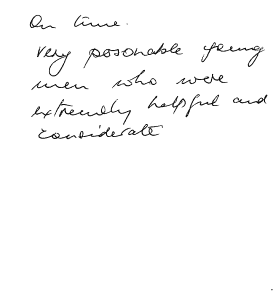 On time.
Very posonable young
men who were
extremely helpful and
considerate